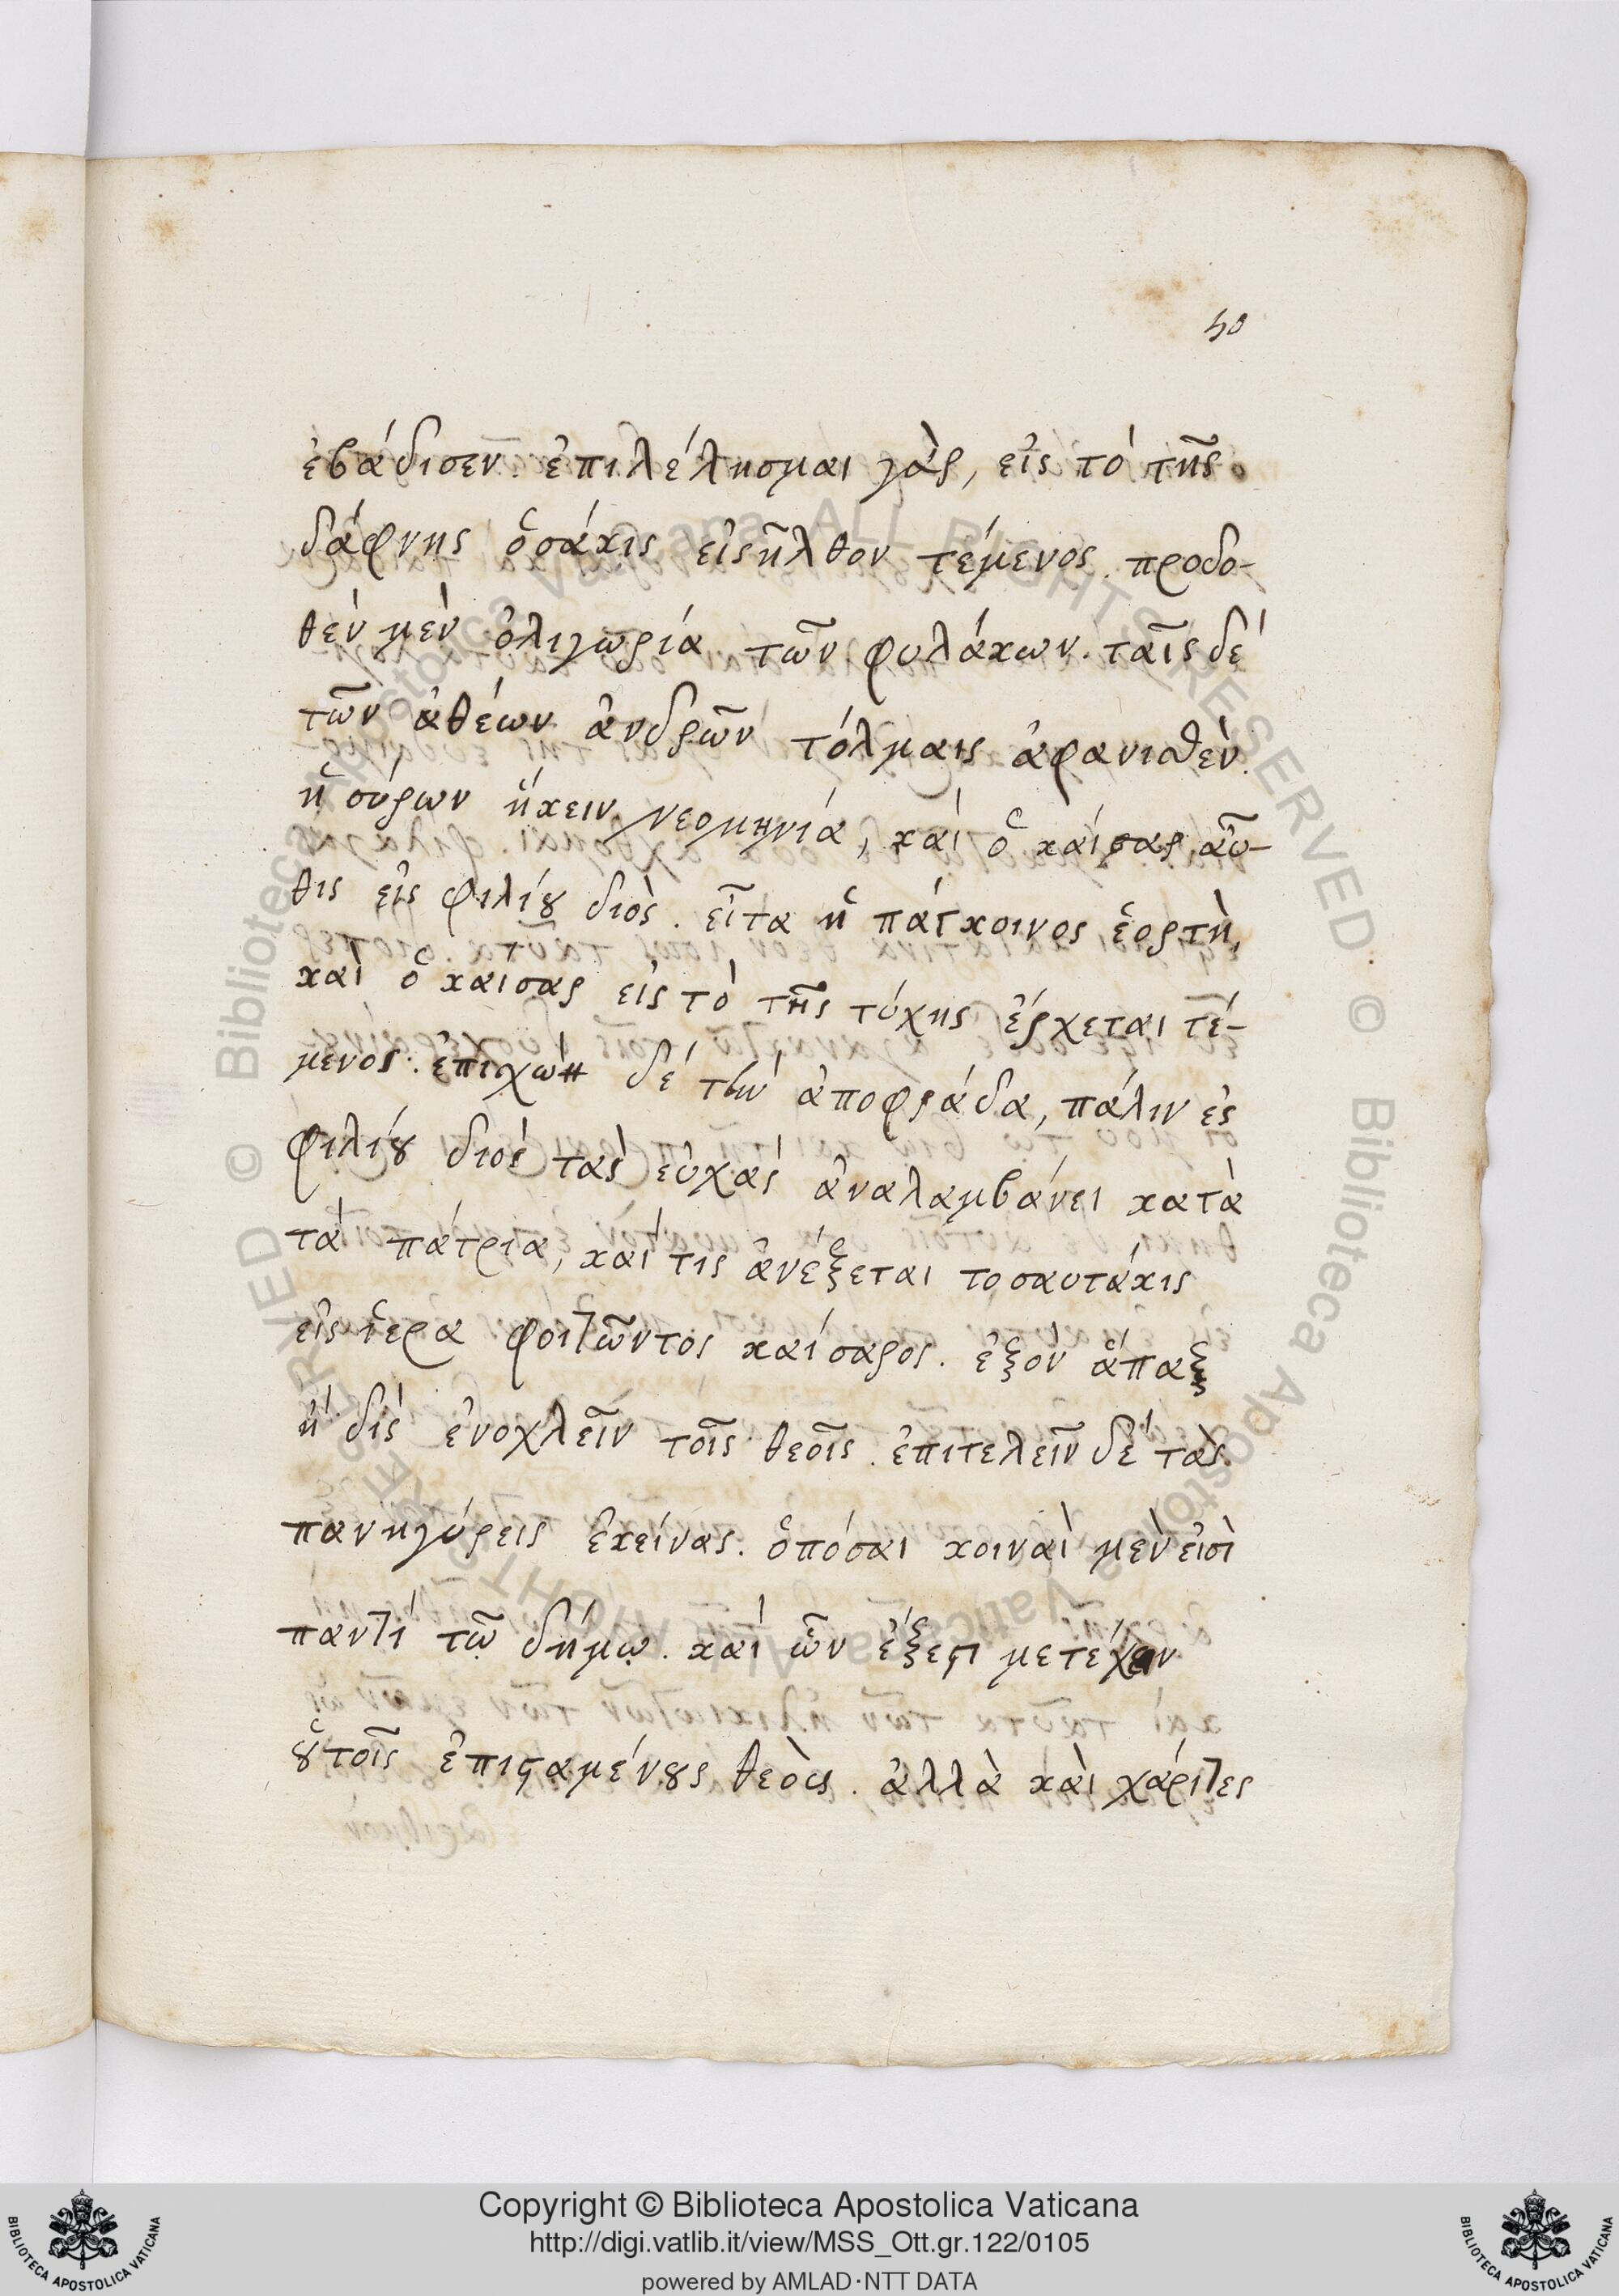 50
ἐβάδισεν. ἐπιλέλησμαι γὰρ, εἰς τὸ τῆς
δάφνης ὁσάκις εἰσῆλθον τέμενος. προδο-
θὲν μὲν ὀλιγωρία τῶν φυλάκων. ταῖς δὲ
τῶν ἀθέων ἀνδρῶν τόλμαις ἀφανισθὲν.
ἡ σύρων ἥκειν νεομηνία, καὶ ὁ καίσαρ αὖ-
θις εἰς φιλίου διὸς. εἶτα ἡ πάγκοινος ἑορτὴ,
καὶ ὁ καισαρ εἰς τὸ τῆς τύχης ἔρχεται τέ-
μενος. ἐπισχὼν δὲ τὴν ἀποφράδα, πάλιν ἐς
φιλίου διὸς τὰς εὐχὰς ἀναλαμβάνει κατὰ
τὰ πάτρια, καὶ τις ἀνέξεται τοσαυτάκις
εἰς ἱερα φοιτῶντος καίσαρος. ἐξὸν ἅπαξ
ἢ δὶς ἐνοχλεῖν τοῖς θεοῖς. ἐπιτελεῖν δὲ τὰς
πανηγύρεις ἐκείνας. ὁπόσαι κοιναὶ μὲν εἰσὶ
παντὶ τῷ δήμῳ. καὶ ὧν ἔξεστι μετέχειν
οὐ τοῖς ἐπισταμένους θεὸις. ἀλλὰ καὶ χάριτες
Copyright © Biblioteca Apostolica Vaticana
http://digi.vatlib.it/view/MSS_Ott.gr.122/0105
powered by AMLAD·NTT DATA
BIBLIOTECA APOSTOLICA VATICANA
BIBLIOTECA APOSTOLICA VATICANA